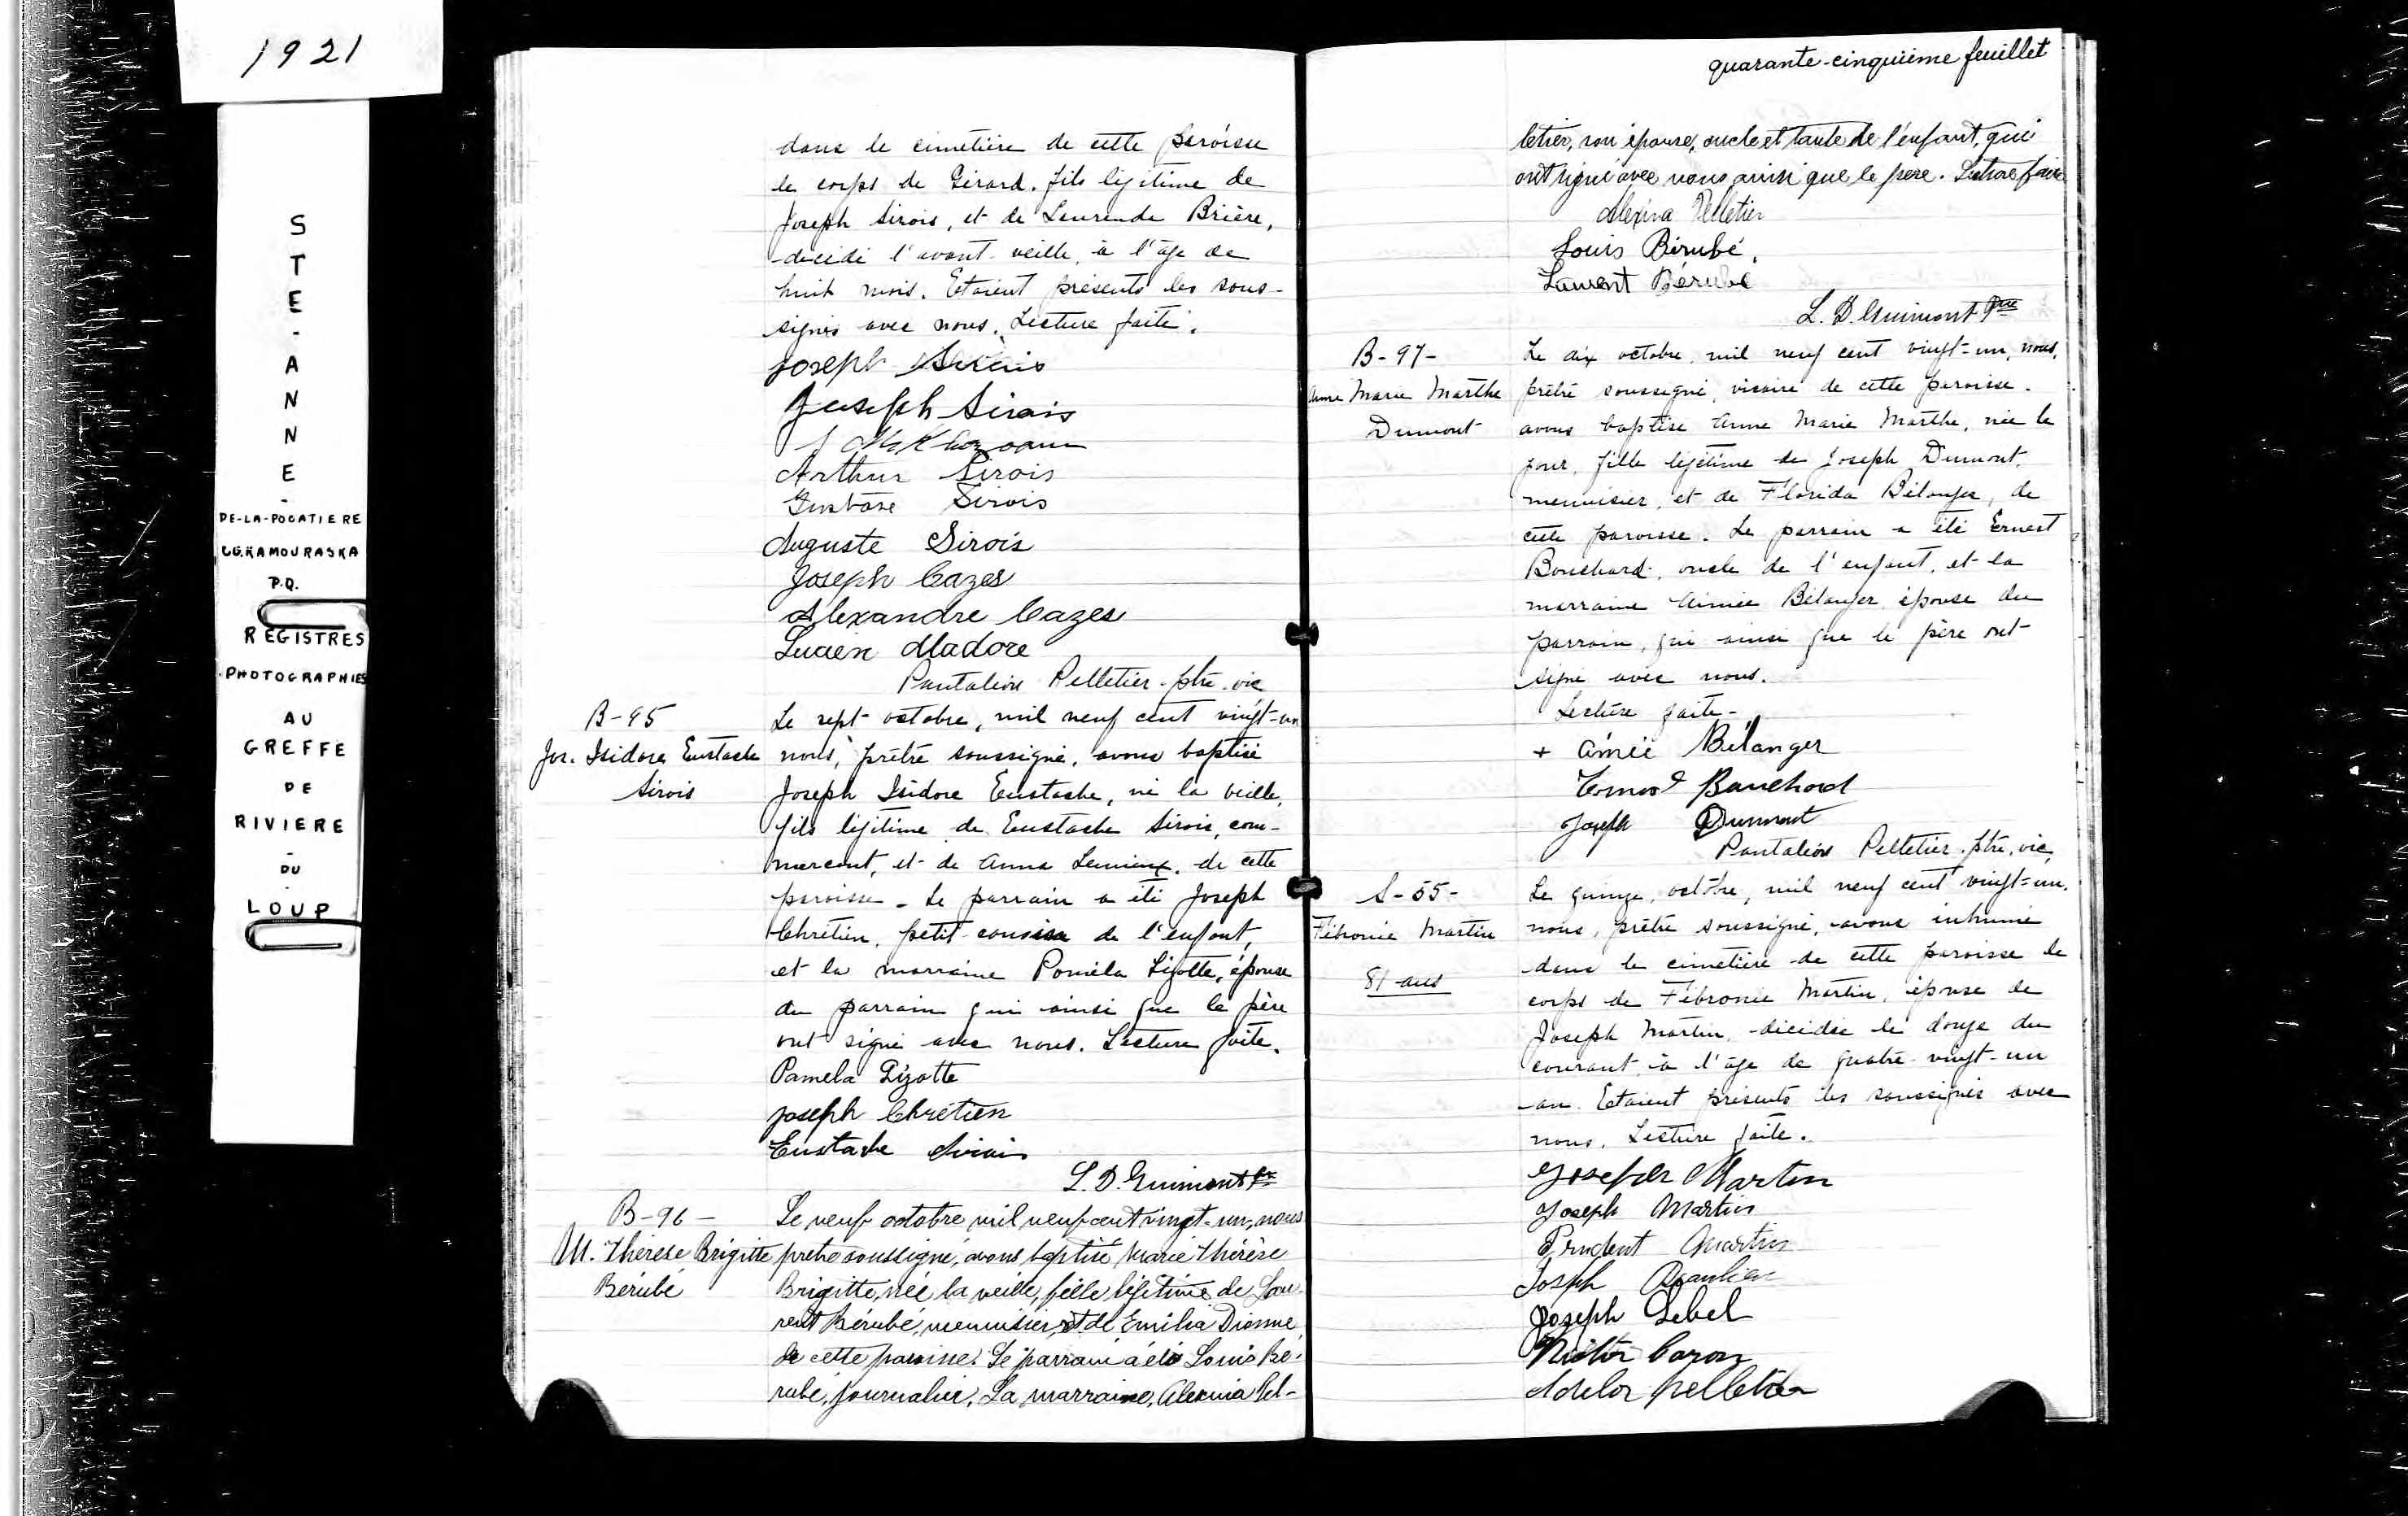 1921
STE-ANNE-
DE-LA-POCATIERE
CO. KAMOURASKA
P.Q.
REGISTRES
PHOTOGRAPHIES
AU
GREFFE
DE
RIVIERE
-
DU
-
LOUP
dans le cimetière de cette paroisse
le corps de Gérard, fils légitime de
Joseph Sirois, et de Laurenda Brière,
décédé l'avant-veille, à l'âge de
huit mois. Etaient présents les sous-
signés avec nous. Lecture faite.
Joseph Sirois
Joseph Sirois
Arthur Sirois
Gustave Sirois
Auguste Sirois
Joseph Cazes
Alexandre Cazes
Lucien Madore
Pantaléon Pelletier. ptre. vic
B-95
Jos. Isidore Eustache
Sirois
Le sept octobre, mil neuf cent vingt-un
nous, prêtre soussigné, avons baptisé
Joseph Isidore Eustache, né la veille,
fils légitime de Eustache Sirois, com-
mercant, et de Anna Lemieux, de cette
paroisse. Le parrain a été Joseph
Chrétien, petit-cousin de l'enfant,
et la marraine Paméla Lizotte, épouse
du parrain qui ainsi que le père
ont signé avec nous. Lecture faite.
Pamela Lizotte
Joseph Chrétien
Eustache Sirois
L. D. Guimont Ptre
B-96-
M. Thérèse Brigitte
Bérubé
Le neuf octobre mil neuf cent vingt-un, nous
prêtre soussigné, avons baptisé Marie Thérèse
Brigitte, née la veille, fille légitime de Lau-
rent Bérubé, menuisier, et de Emilia Dionne
de cette paroisse. Le parrain a été Louis Bé-
rubé, journalier. La marraine, Alexina Pel-
quarante-cinquième feuillet
letier, son épouse, oncle et tante de l'enfant, qui
ont signé avec nous ainsi que le père. Lecture faite
Alexina Pelletier
Louis Bérubé.
Laurent Bérubé
L. D. Guimont Ptre
B-97-
Anne Marie Marthe
Dumont
Le dix octobre, mil neuf cent vingt-un, nous,
prêtre soussigné, vicaire de cette paroisse.
avons baptisé Anne Marie Marthe, née le
jour, fille légitime de Joseph Dumont,
menuisier, et de Florida Bélanger, de
cette paroisse. Le parrain a été Ernest
Bouchard, oncle de l'enfant, et la
marraine Aimée Bélanger épouse du
parrain, qui ainsi que le père ont
signé avec nous.
Lecture faite-
+ Aimée Bélanger
Ernest Bouchard
Joseph Dumont
Pantaléon Pelletier. ptre, vic,
S-55-
Fébronie Martin
81 ans
Le quinze, octobre, mil neuf cent vingt-un.
nous, prêtre soussigné, avons inhumé
dans le cimetière de cette paroisse le
corps de Fébronie Martin, épouse de
Joseph Martin, décédée le douze du
courant, à l'âge de quatre-vingt-un
an. Etaient présents les soussignés avec
nous. Lecture faite.
Joseph Martin
Joseph Martin
Prudent Martin
Joseph Beaulieu
Joseph Lebel
Victor Caron
Adélor Pelletier